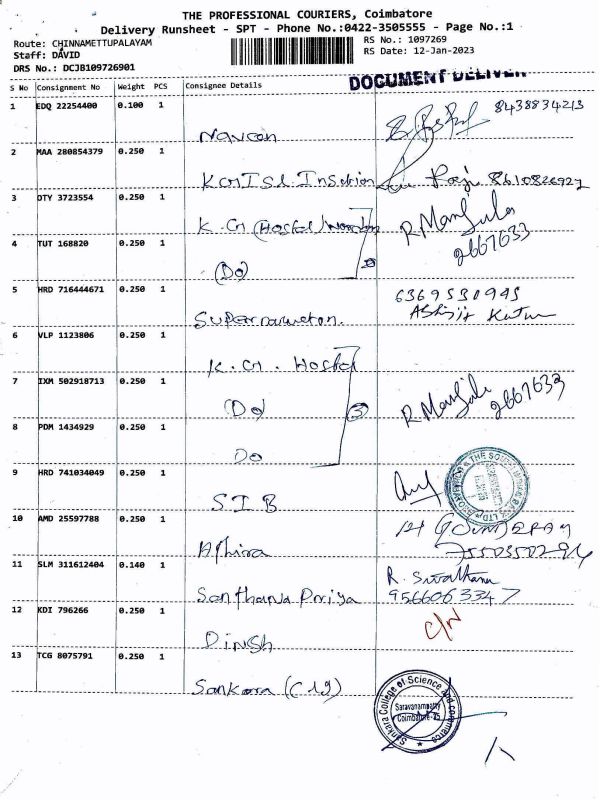 THE PROFESSIONAL COURIERS, Coimbatore
Delivery Runsheet - SPT - Phone No.:0422-3505555 - Page No.:1
Route: CHINNAMETTUPALAYAM
RS No.: 1097269
Staff: DAVID
RS Date: 12-Jan-2023
DRS No.: DCJB109726901
DOCUMENT DELIVER
S No Consignment No Weight PCS Consignee Details
1 EDQ 22254400 0.100 1
8438834213
Naveen
2 MAA 280854379 0.250 1
8610826927
3 DTY 3723554 0.250 1
R. Manjula
2667633
4 TUT 168820 0.250 1
(Do)
5 HRD 716444671 0.250 1
6369530945
6 VLP 1123806 0.250 1
K.G. Hostel
7 IXM 502918713 0.250 1
(Do) 3
R Manjula 2667633
8 PDM 1434929 0.250 1
Do
9 HRD 741034049 0.250 1
SIB
10 AMD 25597788 0.250 1
7550350296
11 SLM 311612404 0.140 1
Santhana Priya
9566063347
12 KDI 796266 0.250 1
C/N
Dinesh
13 TCG 8075791 0.250 1
Sankara (Clg)
Sankara College of Science and Commerce
Saravanampatty
Coimbatore-35